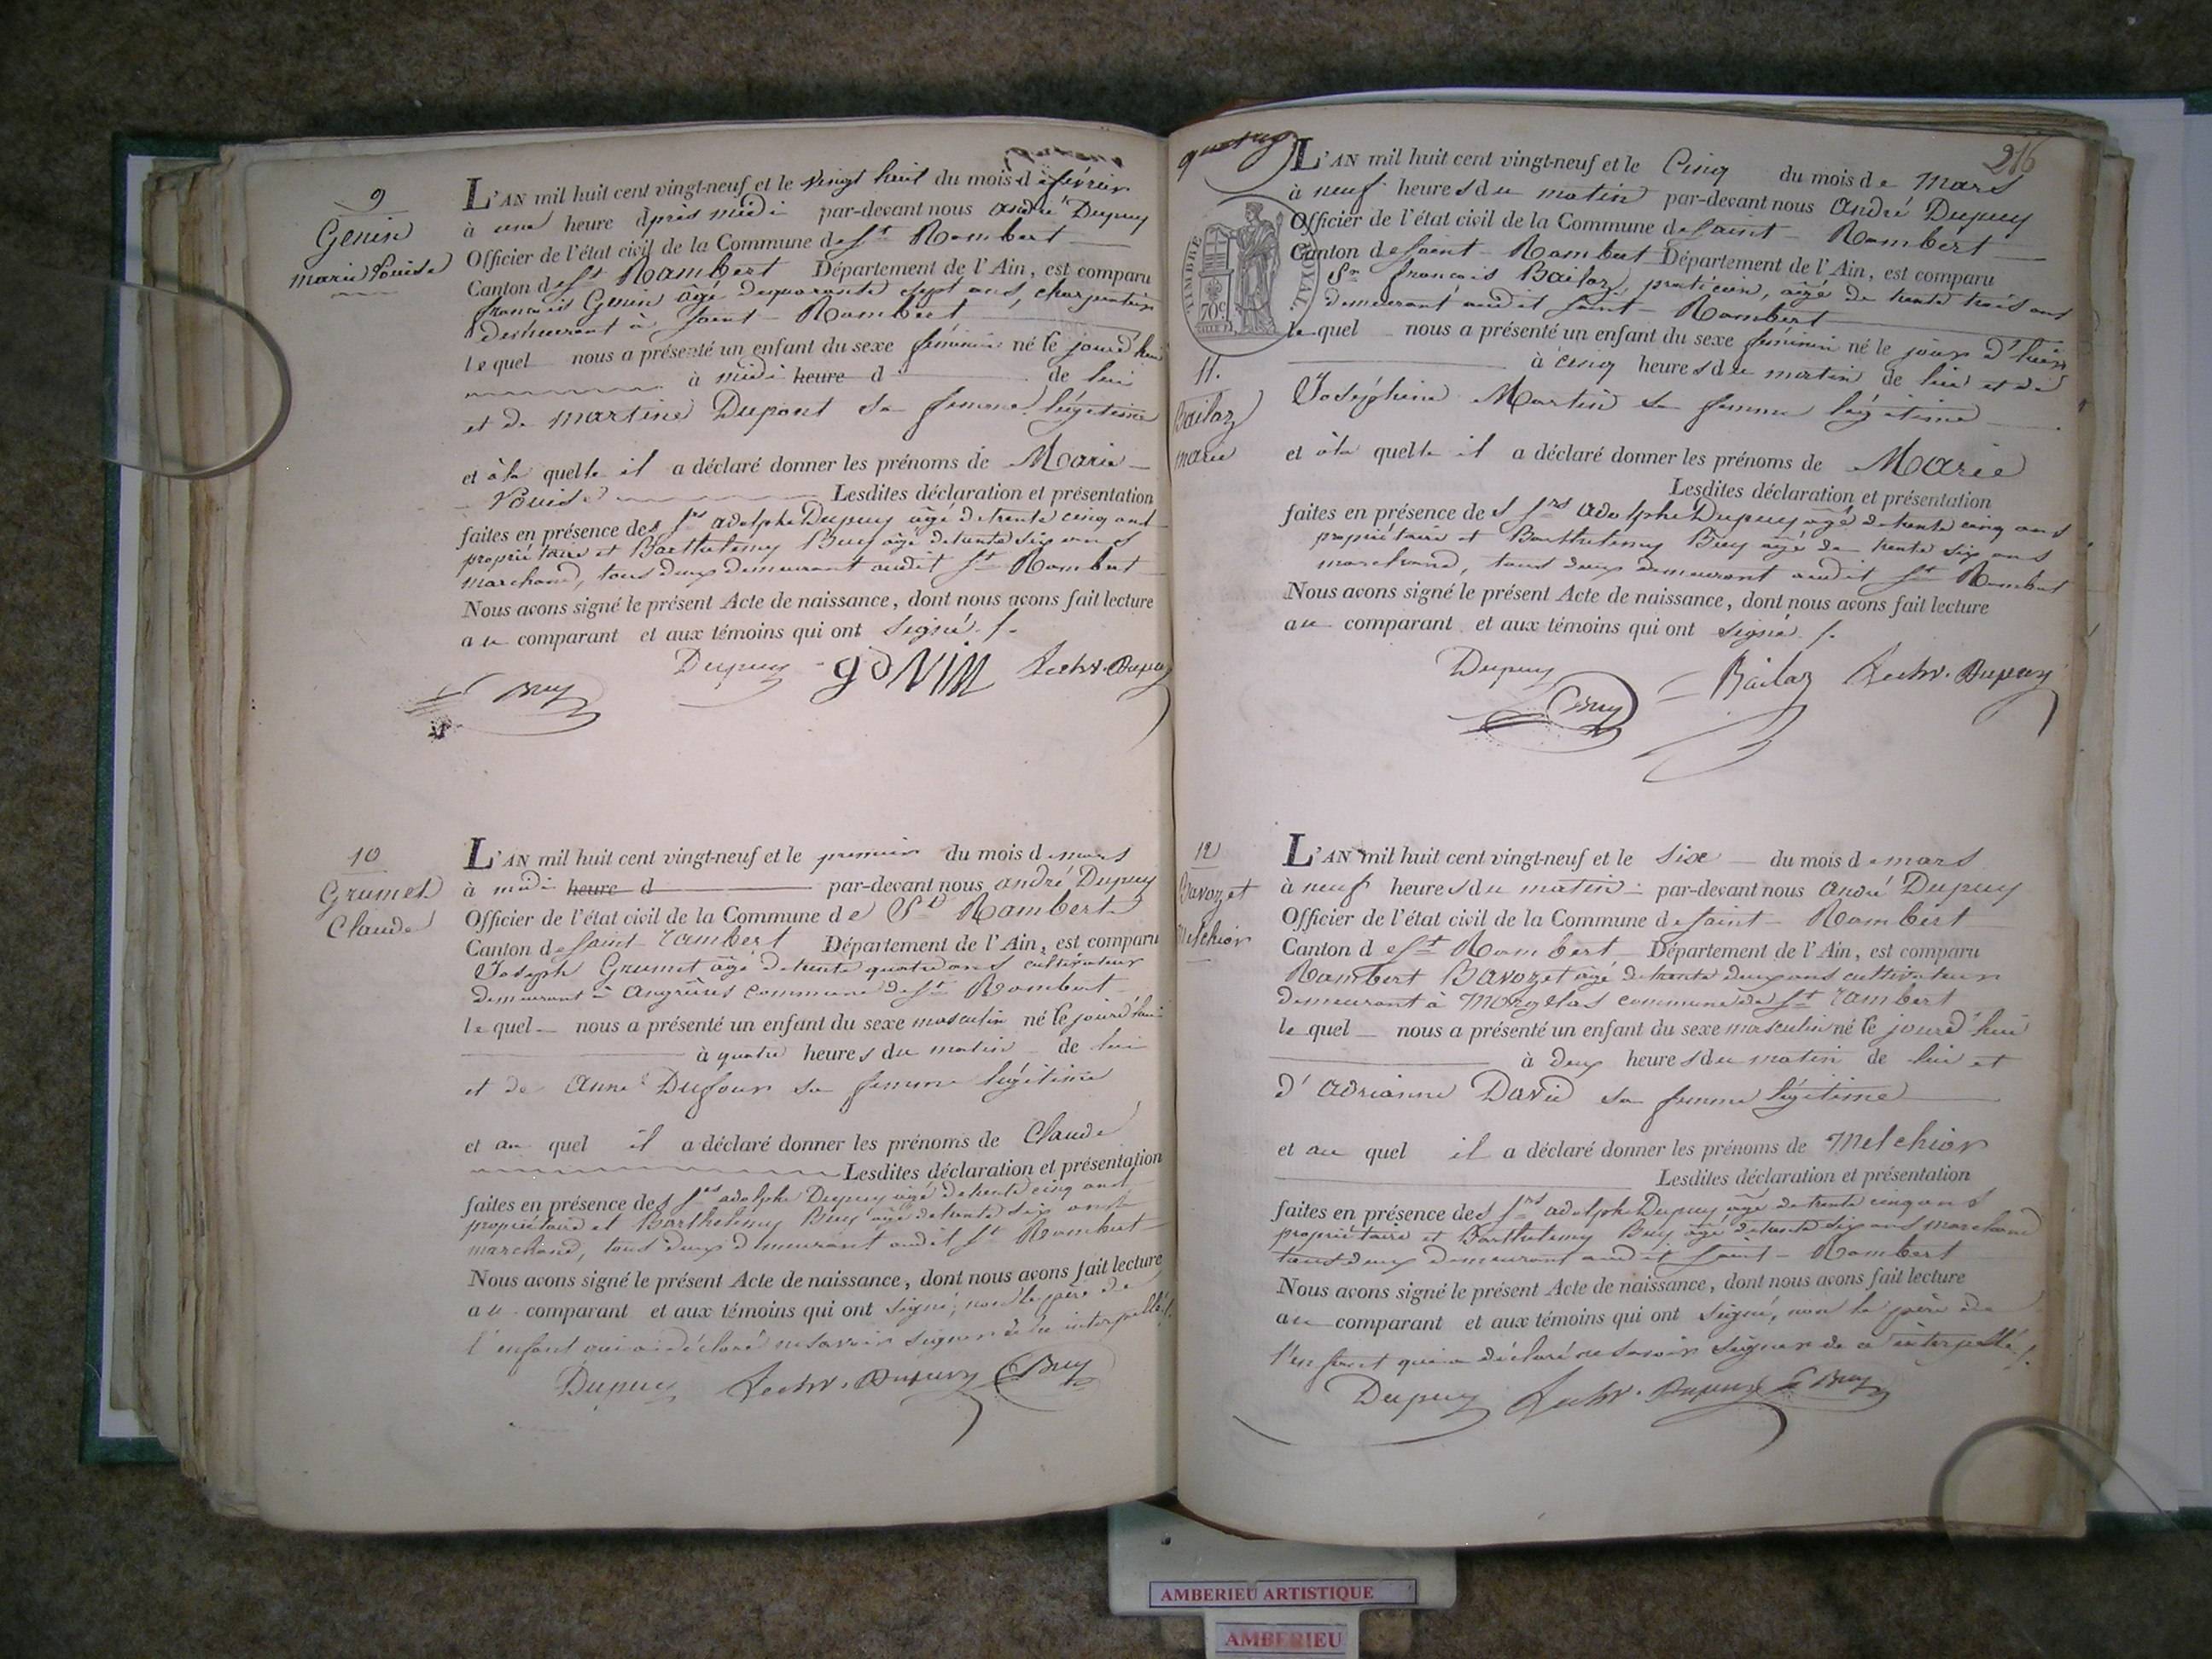 9
Genin
Marie Louise
L'AN mil huit cent vingt-neuf et le vingt huit du mois de février
à une heure après midi par-devant nous André Dupuy
Officier de l'état civil de la Commune de St Rambert
Canton de St Rambert Département de l'Ain, est comparu
françois Genin âgé de quarante sept ans, charpentier
demeurant à Saint-Rambert
lequel nous a présenté un enfant du sexe féminin né le jourd'hui
à midi heure d de lui
et de martine Dupont sa femme légitime
et à la quelle il a déclaré donner les prénoms de Marie
Louise Lesdites déclaration et présentation
faites en présence des Srs adolphe Dupuy âgé de trente cinq ans
propriétaire et Barthelemy Buy âgé de trente six ans
marchand, tous deux demeurant audit St Rambert
Nous avons signé le présent Acte de naissance, dont nous avons fait lecture
au comparant et aux témoins qui ont signé.
Dupuy gONIN Dupuy
Buy
10
Grumet
Claude
L'AN mil huit cent vingt-neuf et le premier du mois de mars
à midi heure d par-devant nous andré Dupuy
Officier de l'état civil de la Commune de St Rambert
Canton de Saint rambert Département de l'Ain, est comparu
Joseph Grumet âgé de trente quatre ans cultivateur
demeurant à Angrières commune de St Rambert
lequel nous a présenté un enfant du sexe masculin né le jourd'hui
à quatre heures du matin de lui
et de Anne Dufour sa femme légitime
et au quel il a déclaré donner les prénoms de Claude
Lesdites déclaration et présentation
faites en présence des Srs adolphe Dupuy âgé de trente cinq ans
propriétaire et Barthelemy Buy âgé de trente six ans
marchand, tous deux demeurant audit St Rambert
Nous avons signé le présent Acte de naissance, dont nous avons fait lecture
au comparant et aux témoins qui ont signé, non le père de
l'enfant qui a déclaré ne savoir signer de ce interpellé.
Dupuy Dupuy Buy
216
TIMBRE ROYAL
70c
11.
Bailaz
marie
L'AN mil huit cent vingt-neuf et le Cinq du mois de Mars
à neuf heures du matin par-devant nous André Dupuy
Officier de l'état civil de la Commune de Saint-Rambert
Canton de Saint-Rambert Département de l'Ain, est comparu
Sr françois Bailaz, praticien, âgé de trente trois ans
demeurant audit Saint-Rambert
lequel nous a présenté un enfant du sexe féminin né le jour d'hier
à cinq heures du matin de lui et de
Joséphine Martin sa femme légitime
et à la quelle il a déclaré donner les prénoms de Marie
Lesdites déclaration et présentation
faites en présence des Srs Adolphe Dupuy âgé de trente cinq ans
propriétaire et Barthelemy Buy âgé de trente six ans
marchand, tous deux demeurant audit St Rambert
Nous avons signé le présent Acte de naissance, dont nous avons fait lecture
au comparant et aux témoins qui ont signé.
Dupuy Bailaz Dupuy
Buy
12
Bavozet
Melchior
L'AN mil huit cent vingt-neuf et le six du mois de mars
à neuf heures du matin par-devant nous André Dupuy
Officier de l'état civil de la Commune de Saint-Rambert
Canton de St Rambert Département de l'Ain, est comparu
Rambert Bavozet âgé de trente deux ans cultivateur
demeurant à Morgelas commune de St rambert
lequel nous a présenté un enfant du sexe masculin né le jourd'hui
à deux heures du matin de lui et
d'Adrianne David sa femme légitime
et au quel il a déclaré donner les prénoms de Melchior
Lesdites déclaration et présentation
faites en présence des Srs adolphe Dupuy âgé de trente cinq ans
propriétaire et Barthelemy Buy âgé de trente six ans marchand
tous deux demeurant audit Saint-Rambert
Nous avons signé le présent Acte de naissance, dont nous avons fait lecture
au comparant et aux témoins qui ont signé, non le père de
l'enfant qui a déclaré ne savoir signer de ce interpellé.
Dupuy Dupuy Buy
AMBERIEU ARTISTIQUE
AMBERIEU